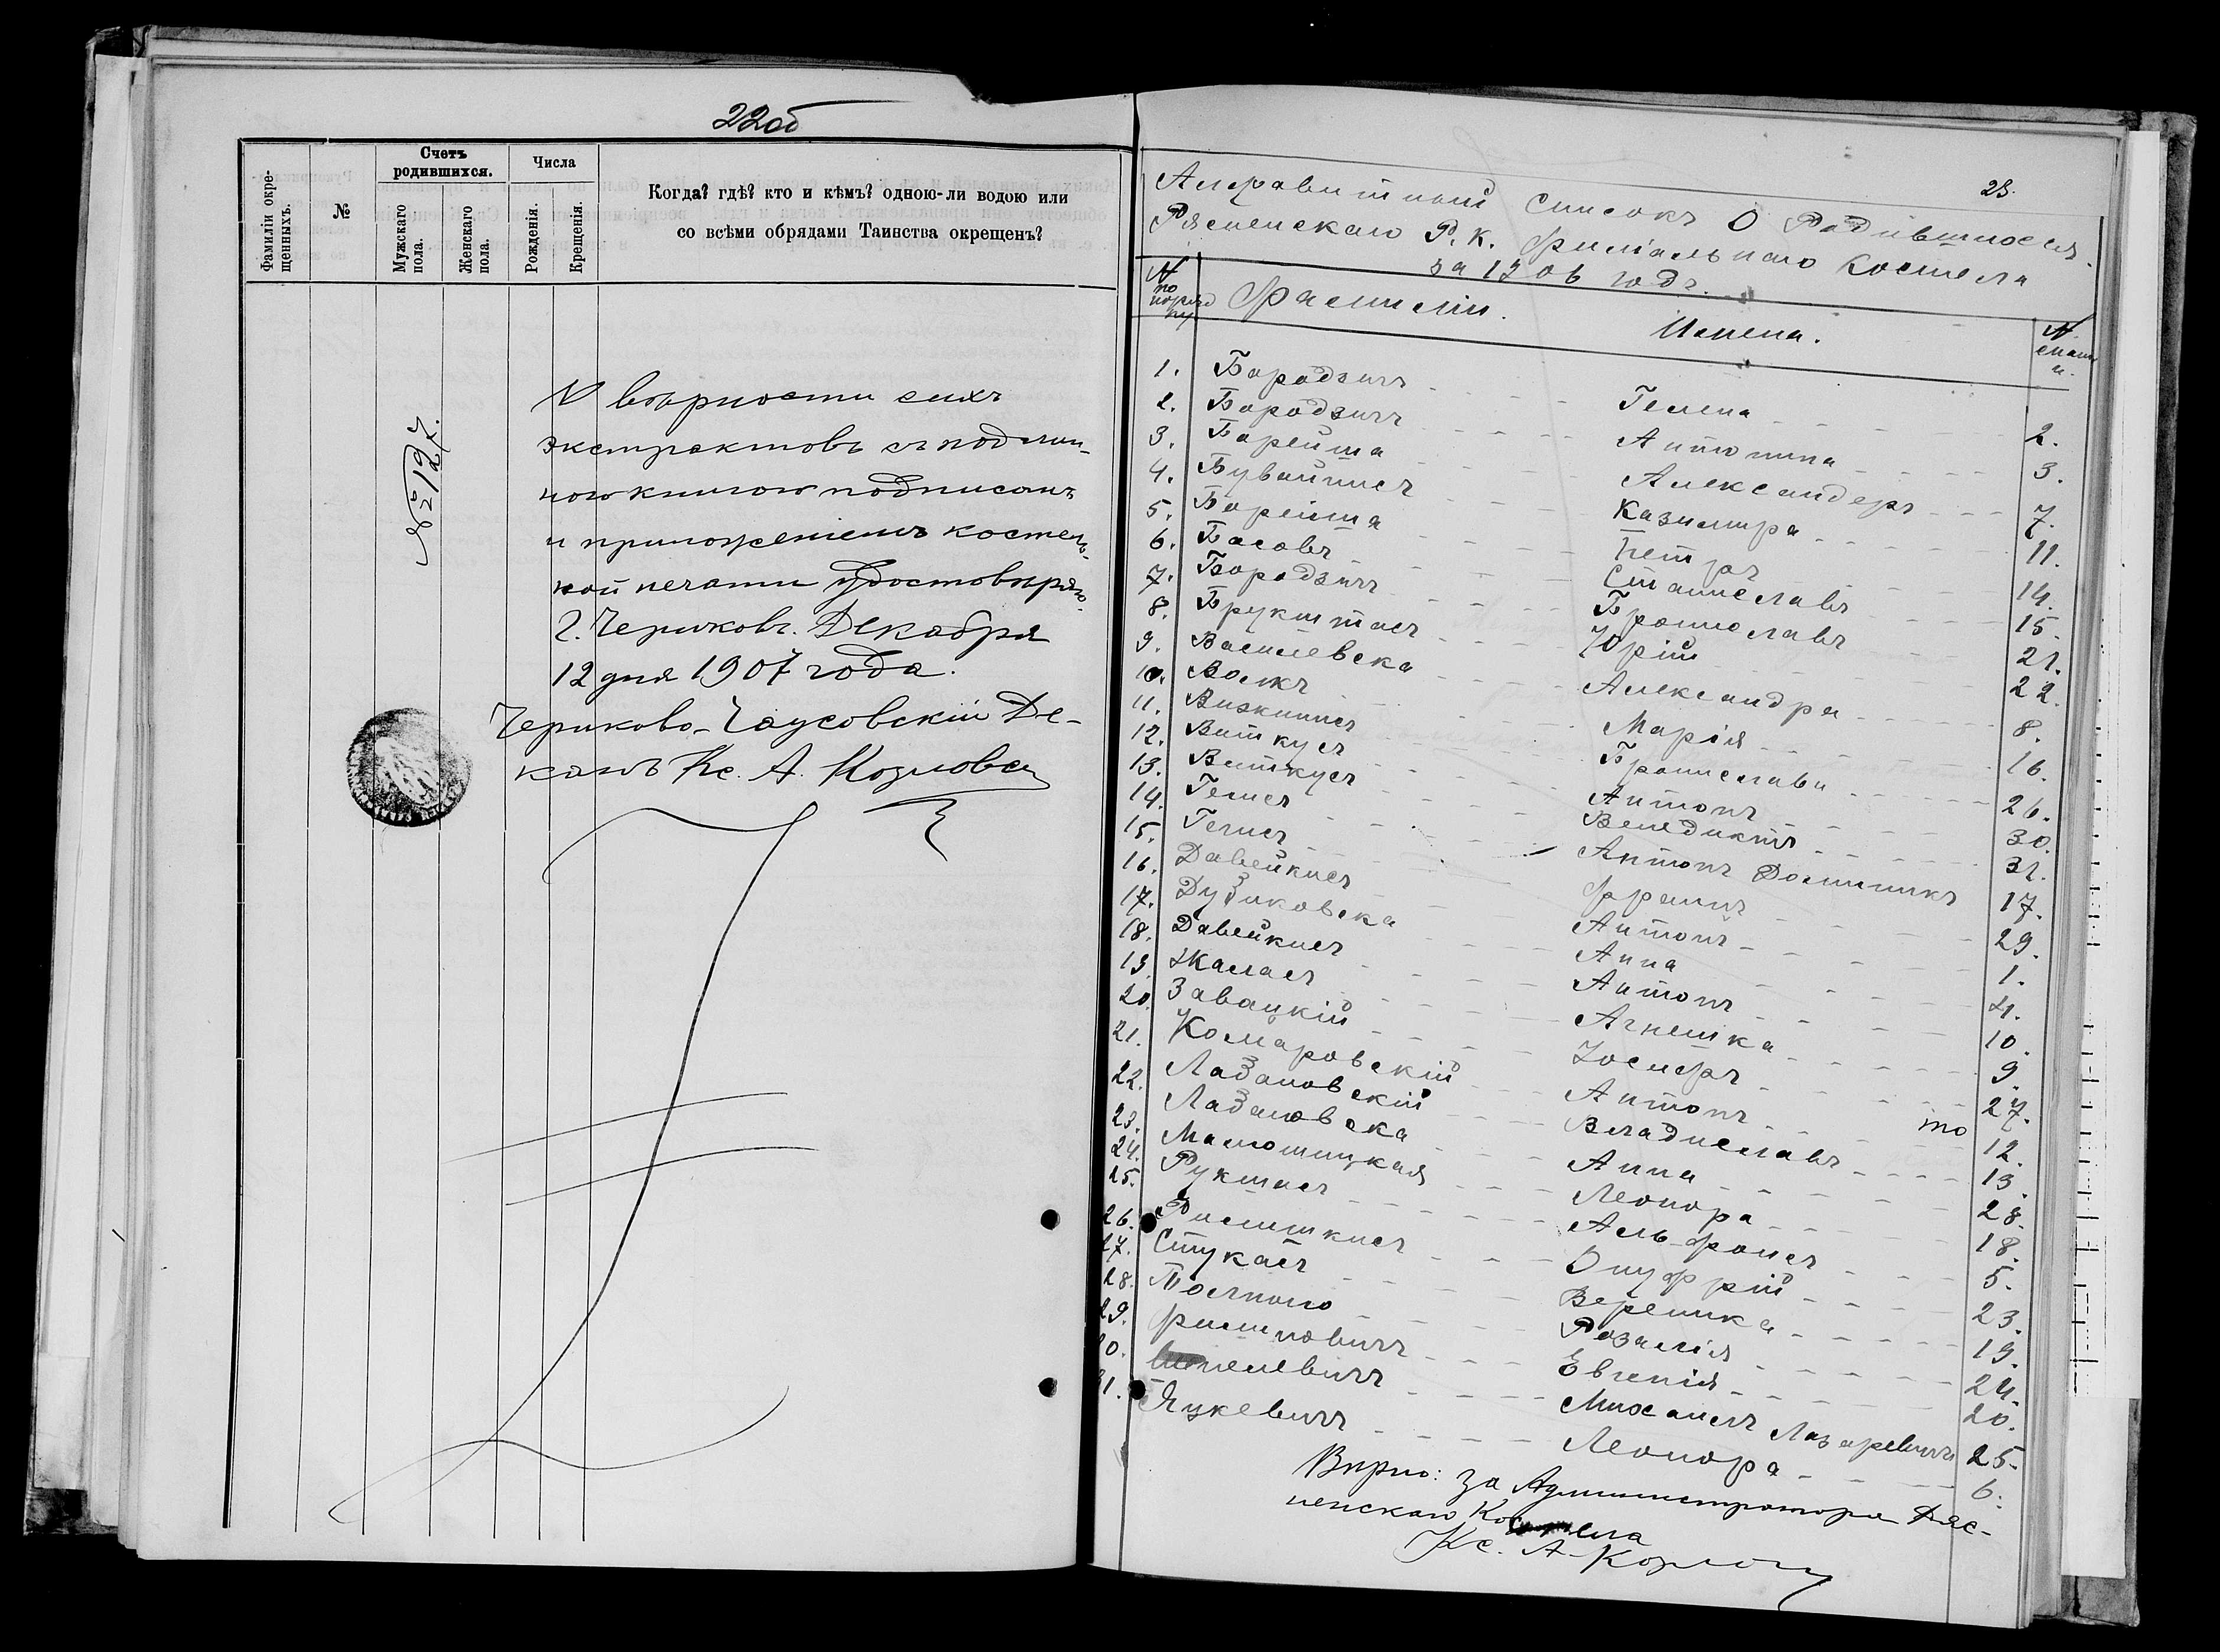 22об
Фамиліи окре-
щенныхъ.
№
Счетъ
родившихся.
Мужскаго
пола.
Женскаго
пола.
Числа
Рожденія.
Крещенія.
Когда? гдѣ? кто и кѣмъ? одною-ли водою или
со всѣми обрядами Таинства окрещенъ?
№ 127.
вѣрности сихъ
экстрактовъ съ подлин-
ною книгою подписомъ
и приложеніемъ костель-
ной печати удостовѣряю.
г. Чериковъ. Декабря
12 дня 1907 года.
Чериково-Чаусовскій Де-
канъ Кс. А. Козловскі
23.
Алфавитный списокъ о Родившихся
Рясненскаго Р. К. филіальнаго Костела
за 1906 годъ.
№ по порядку Фамиліи. Имена. №
1. Бородзичъ Гелена 2.
2. Бородзичъ Антонина 3.
3. Борейша Александеръ 7.
4. Бувайнисъ Казимира 11.
5. Борейша Петръ 14.
6. Басовъ Станиславъ 15.
7. Бородзичъ Брониславъ 21.
8. Брукштасъ Юрій 22.
9. Василевска Александра 8.
10. Волкъ Марія 16.
11. Визкинисъ Бронислава 26.
12. Виткусъ Антонъ 30.
13. Виткусъ Венедиктъ 31.
14. Гечисъ Антонъ Доминикъ 17.
15. Гечисъ Францъ 29.
16. Давейнисъ Антонъ 1.
17. Дузиковска Анна 4.
18. Давейнисъ Антонъ 10.
19. Жаласъ Агнешка 9.
20. Завацкій Іосифъ 27.
21. Комаровскій Антонъ то 12.
22. Лазановскій Владиславъ 13.
23. Лазановска Анна 28.
24. Малюшицкая Леонора 18.
25. Рукшасъ Альфонсъ 5.
26. Римшкисъ Онуфрій 23.
27. Стукасъ Вероника 19.
28. Толпыго Розалія 24.
29. Филиповичъ Евгенія 20.
30. Михаилъ Лазаревичъ 25.
31. Яцкевичъ Леонора 6.
Вѣрно: за Администратора Ряс-
ненскаго Костела
Кс. А. Козлов